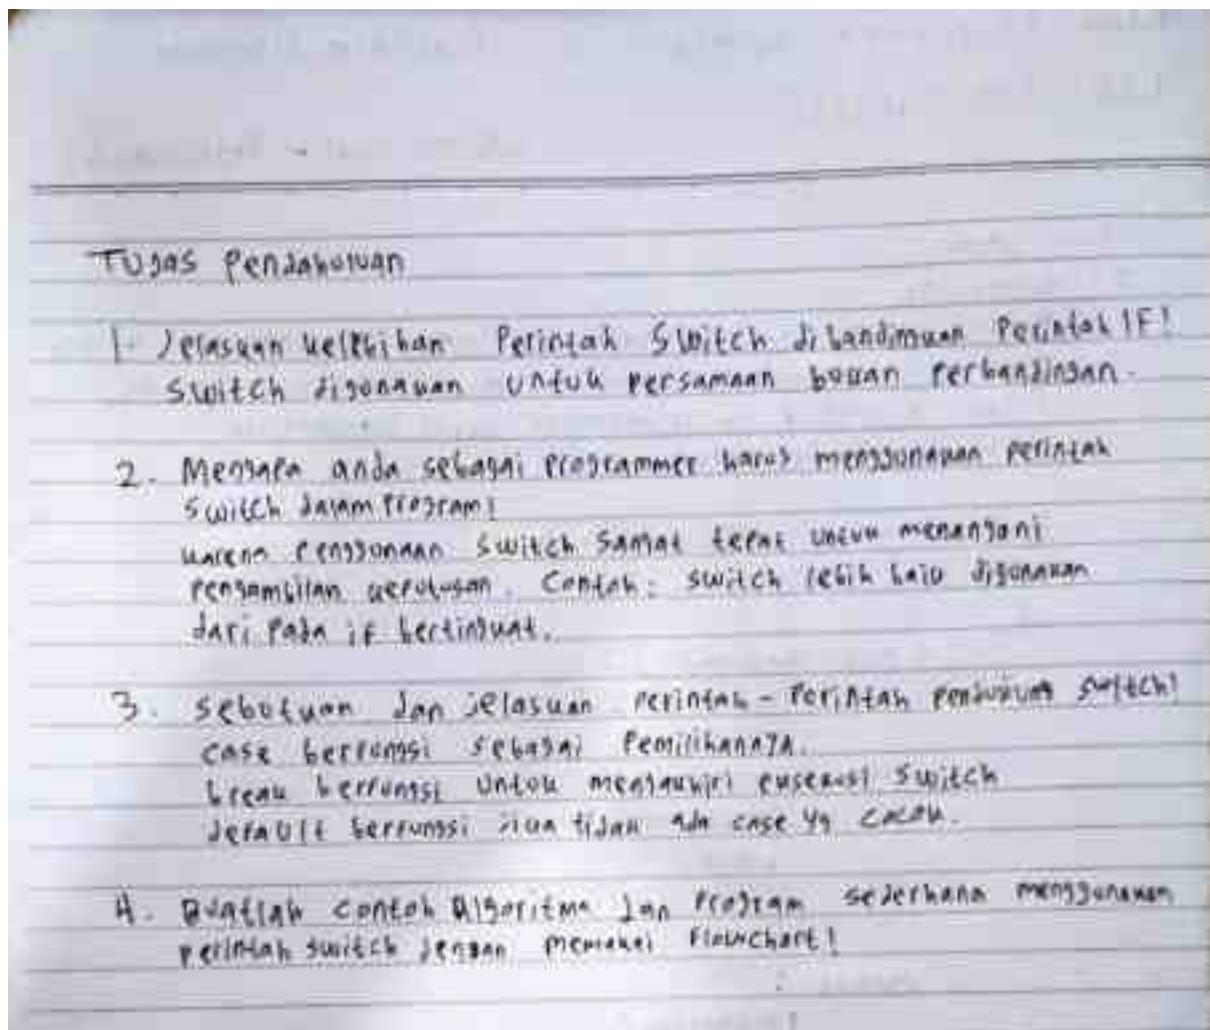 Tugas Pendahuluan
1. Jelaskan kelebihan Perintah Switch dibandingkan Perintah IF!
Switch digunakan untuk persamaan bukan perbandingan.
2. Mengapa anda sebagai programmer harus menggunakan perintah
switch dalam program!
karena penggunaan switch sangat tepat untuk menangani
pengambilan keputusan. Contoh: switch lebih baik digunakan
dari pada if bertingkat.
3. sebutkan dan jelaskan perintah-perintah pendukung switch!
case berfungsi sebagai Pemilihannya.
break berfungsi untuk mengakhiri eksekusi switch
default berfungsi jika tidak ada case yg cocok.
4. Buatlah contoh Algoritma dan program sederhana menggunakan
perintah switch dengan memakai Flowchart!